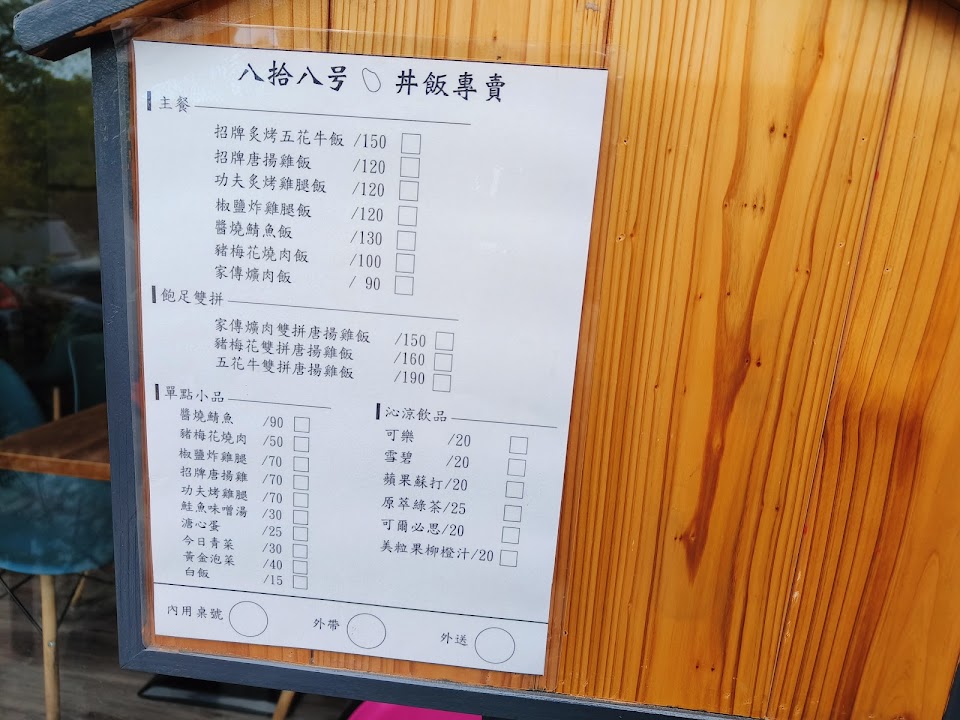 八拾八号 丼飯專賣
主餐
招牌炙烤五花牛飯 /150
招牌唐揚雞飯 /120
功夫炙烤雞腿飯 /120
椒鹽炸雞腿飯 /120
醬燒鯖魚飯 /130
豬梅花燒肉飯 /100
家傳爌肉飯 / 90
飽足雙拼
家傳爌肉雙拼唐揚雞飯 /150
豬梅花雙拼唐揚雞飯 /160
五花牛雙拼唐揚雞飯 /190
單點小品
醬燒鯖魚 /90
豬梅花燒肉 /50
椒鹽炸雞腿 /70
招牌唐揚雞 /70
功夫烤雞腿 /70
鮭魚味噌湯 /30
溏心蛋 /25
今日青菜 /30
黃金泡菜 /40
白飯 /15
沁涼飲品
可樂 /20
雪碧 /20
蘋果蘇打/20
原萃綠茶/25
可爾必思/20
美粒果柳橙汁/20
內用桌號 外帶 外送